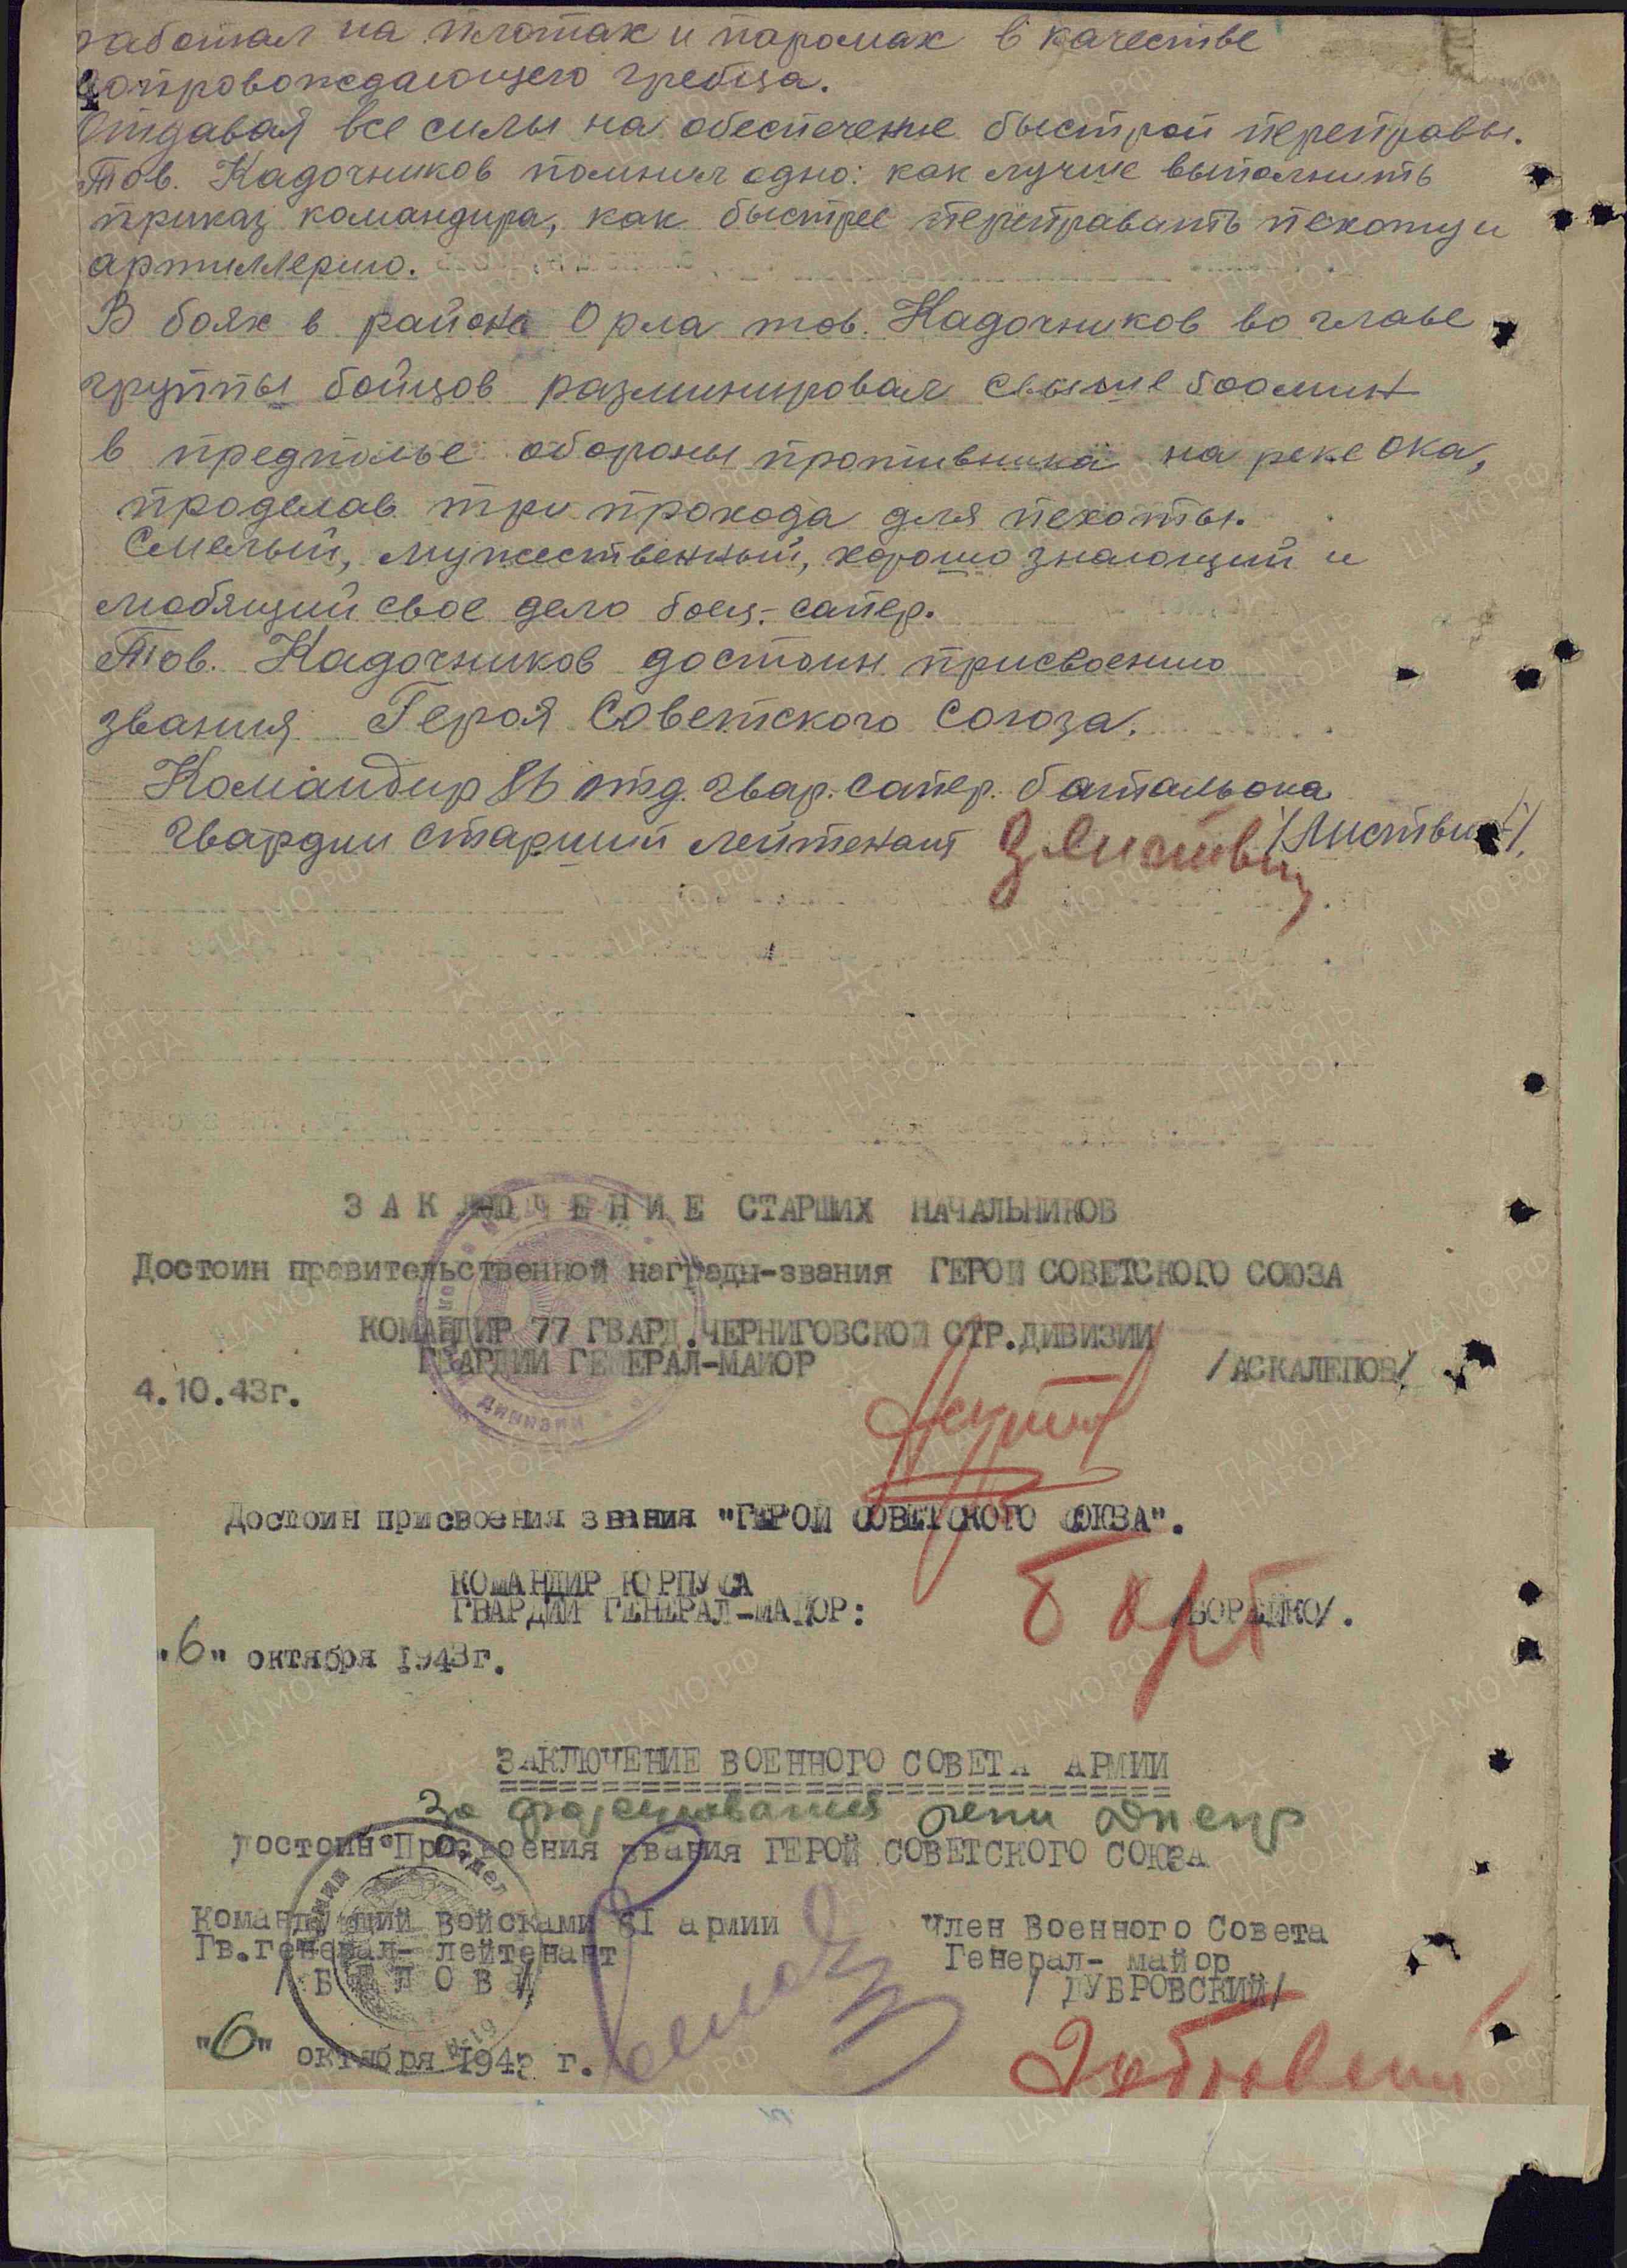 работал на плотах и паромах в качестве
сопровождающего гребца.
Отдавая все силы на обеспечение быстрой переправы.
Тов. Кадочников помнил одно: как лучше выполнить
приказ командира, как быстрее переправить пехоту и
артиллерию.
В боях в районе Орла тов. Кадочников во главе
группы бойцов разминировал свыше 600 мин
в предполье обороны противника на реке Ока,
проделав три прохода для пехоты.
Смелый, мужественный, хорошо знающий и
любящий свое дело боец-сапер.
Тов. Кадочников достоин присвоению
звания Героя Советского Союза.
Командир 86 отд. гвар. сапер. батальона
гвардии старший лейтенант /Листвин/
ЗАКЛЮЧЕНИЕ СТАРШИХ НАЧАЛЬНИКОВ
Достоин правительственной награды-звания ГЕРОЙ СОВЕТСКОГО СОЮЗА
КОМАНДИР 77 ГВАРД.ЧЕРНИГОВСКОЙ СТР.ДИВИЗИИ
ГВАРДИИ ГЕНЕРАЛ-МАЙОР /АСКАЛЕПОВ/
4.10.43г.
Достоин присвоения звания "ГЕРОЙ СОВЕТСКОГО СОЮЗА".
КОМАНДИР КОРПУСА
ГВАРДИИ ГЕНЕРАЛ-МАЙОР: /БОРЕЙКО/.
"6" октября 1943г.
ЗАКЛЮЧЕНИЕ ВОЕННОГО СОВЕТА АРМИИ
За форсирование реки Днепр
достоин Присвоения звания ГЕРОЙ СОВЕТСКОГО СОЮЗА
Командующий войсками 61 армии Член Военного Совета
Гв.генерал-лейтенант Генерал-майор
/БЕЛОВ/ /ДУБРОВСКИЙ/
"6" октября 1943 г.